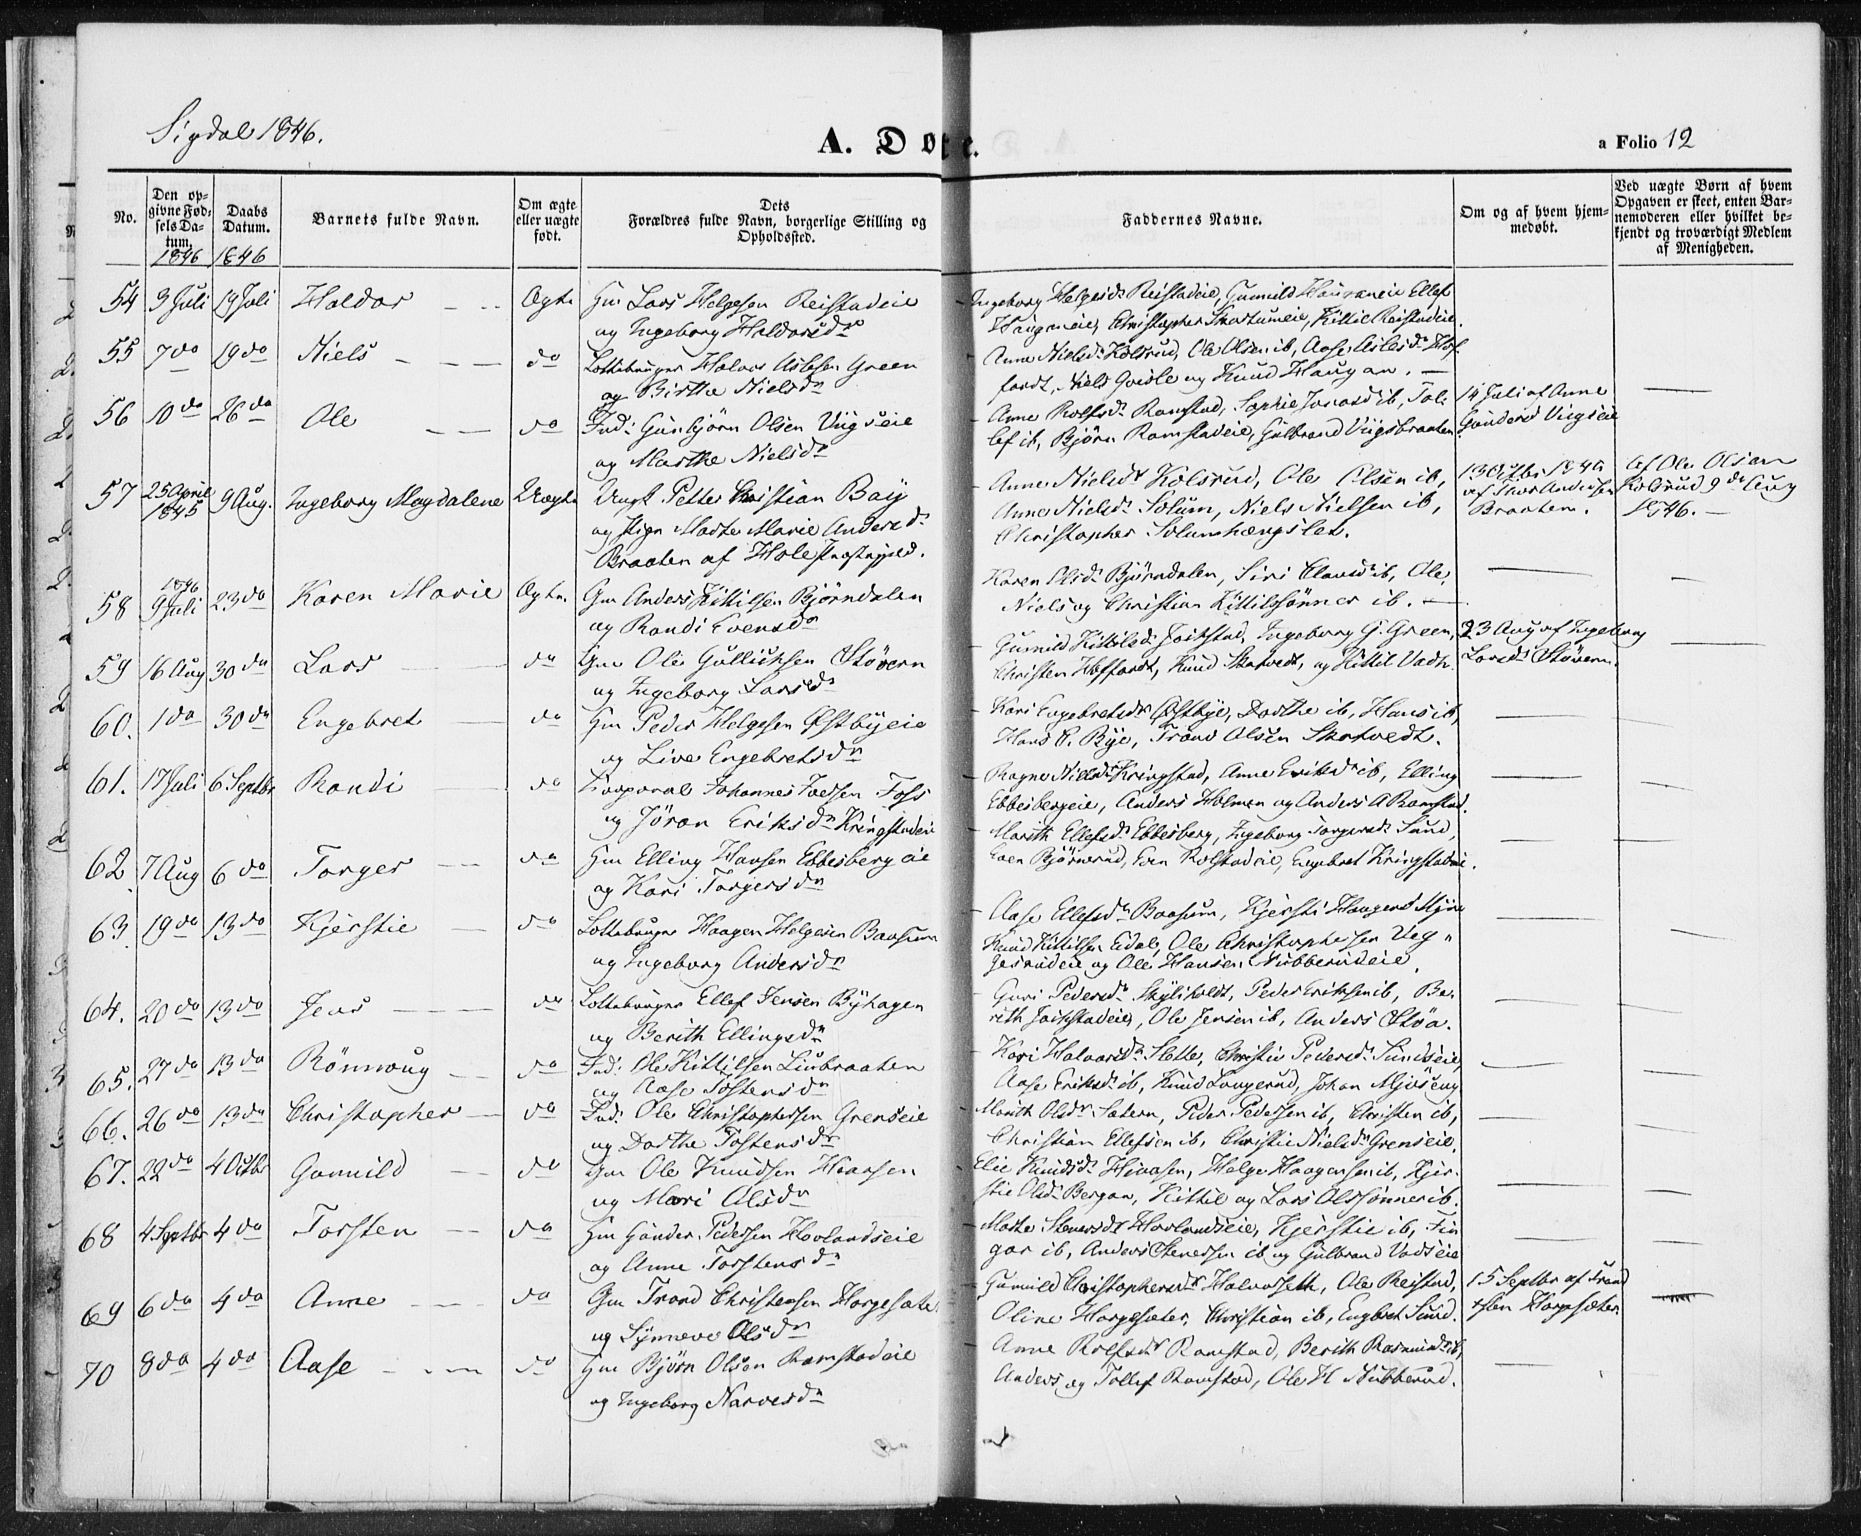 Sigdal 1846.
A. Døte.
a Folio 12
No.
Den opgivne Fødsels Datum.
1846
Daabs Datum.
1846
Barnets fulde Navn.
Om ægte eller uægte født.
Dets Forældres fulde Navn, borgerlige Stilling og Opholdssted.
Faddernes Navne.
Om og af hvem hjemmedøbt.
Ved uægte Børn af hvem Opgaven er skeet, enten Barnemoderen eller hvilket bekjendt og troværdigt Medlem af Menigheden.
54 3 Juli 19 Juli Haldor Ægte Gm Lars Helgesen Reistadeie
og Ingeborg Haldorsdr
Ingeborg Helgesdr Reistadeie, Gunnild Hauganeie Ellef
Hauganeie, Christopher Skartumeie, Kittil Reistadeie.
55 7 do 19 do Niels do Lottebruger Halvor Aslesen Green
og Birthe Nielsdr
Anne Nielsdr Kolsrud, Ole Olsen ib, Aase Aslesdr Hof
fardt, Niels Qvisle og Knud Haugan.
56 10 do 26 do Ole do Ind: Gunbjörn Olsen Viigseie
og Marthe Nielsdr
Anne Rolfsdr Ramstad, Sophie Jonasd ib, Tol
lef ib, Björn Ramstadeie, Gulbrand Viigsbraaten
14 Juli af Anne
Gundersd Viigseie
57 25 April 1845 9 Aug. Ingeborg Magdalene Uægte Ungk Petter Christian Bay
og Pige Marte Marie Andersdr
Braaten af Hole Præstegjeld.
Anne Nielsdr Kolsrud, Ole Olsen ib,
Anne Nielsdr Solum, Niels Nielsen ib,
Christopher Solumhængslet.
af Thor Andersen
Braaten.
Af Ole Olsen
Kolsrud 9de Aug
1846.
58 1846 9 Juli 23 do Karen Marie Ægte. Gm Anders Kittilsen Björndalen
og Randi Evensdr
Karen Olsdr Björndalen, Siri Clausd ib, Ole,
Niels og Christian Kittilssönner ib.
59 16 Aug 30 do Lars do Gm Ole Gulliksen Støvern
og Ingeborg Larsdr
Gunnild Kittilsdr Joikstad, Ingeborg G. Green,
Christen Hoffardt, Knud Skatvedt, og Kittil Vadh.
23 Aug af Ingeborg
Larsdr Støvern.
60. 1 do 30 do Engebret do Gm Peder Helgesen Østbyeie
og Live Engebretsdr
Kari Engebretsdr Østbye, Dorthe ib, Hans ib,
Hans P. Bye, Trond Olsen Skatvedt.
61. 17 Juli 6 Septbr Randi do Korporal Johannes Joesen Foss
og Jöran Eriksdr Kringstadeie
Ragne Nielsdr Kringstad, Anne Eriksdr ib, Elling
Ebbesbergeie, Anders Holmen og Anders A Ramstad.
62 7 Aug 6 do Torger do Gm Elling Hansen Ebbesbergeie
og Kari Torgersdr
Marith Ellefsdr Ebbesberg, Ingeborg Torgersdr Sund,
Even Björnerud, Even Rolstadeie, Engebret Kringstadeie.
63 19 do 13 do Kjerstie do Lottebruger Haagen Helgesen Baasum
og Ingeborg Andersdr
Aase Ellefsdr Baasum, Kjersti Haagensd Myre
Knud Kittilsen Eidal, Ole Christophersen Veg
gesrudeie og Ole Hansen Nubberudeie.
64. 20 do 13 do Jens do Lottebruger Ellef Jensen Byhagen
og Berith Ellingsdr
Guri Pedersdr Skyliholdt, Peder Eriksen ib, Be
rith Joikstadeie, Ole Jensen ib, Anders Støa.
65. 27 do 13 do Rönnoug do Ind: Ole Kittilsen Liubraaten
og Aase Tostensdr
Kari Halvorsdr Slette, Christie Pedersdr Sundseie,
Aase Eriksdr ib, Knud Langerud, Johan
66. 26 do 13 do Christopher do Ind: Ole Christophersen Grenseie
og Dorthe Tostensdr
Marith Olsdr Satern, Peder Pedersen ib, Christen ib,
Christian Ellefsen ib, Christie Nielsdr Grenseie.
67. 22 do 4 Octbr Gunnild do Gm Ole Knudsen Hiaasen
og Mari Olsdr
Elie Knudsdr Hiaasen, Helge Haagensen ib, Kjer
stie Olsdr Bergan, Kittil og Lars Olssönner ib.
68 4 Septbr 4 do Torsten do Gm Gunder Pedersen Hovlandseie
og Anne Torstensdr
Marthe Stenersdr Hovlandseie, Kjerstie ib, Fin
gar ib, Anders Stenersen ib og Gulbrand Vadseie
69 6 do 4 do Anne do Gm Trond Christensen Horgesæter
og Synneve Olsdr
Gunnild Christophersdr Halvorseth, Ole Reistad,
Oline Horgesæter, Christian ib, Engbret Sund.
15 Septbr af Trond
Horgesæter
70 8 do 4 do Aase do Gm Björn Olsen Ramstadeie
og Ingeborg Narvesdr
Anne Rolfsdr Ramstad, Berith Rasmusdr ib,
Anders og Tollef Ramstad, Ole H Nubberud.